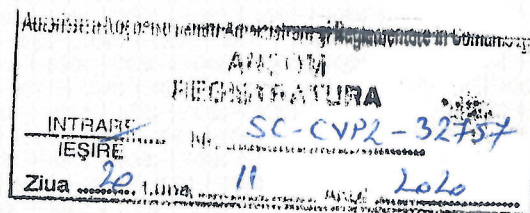 Autoritatea Națională pentru Administrare și Reglementare în Comunicații
ANCOM
REGISTRATURA
INTRARE
IEȘIRE
Nr. SC-CVP2-32757
Ziua 20 Luna 11 Anul 2020